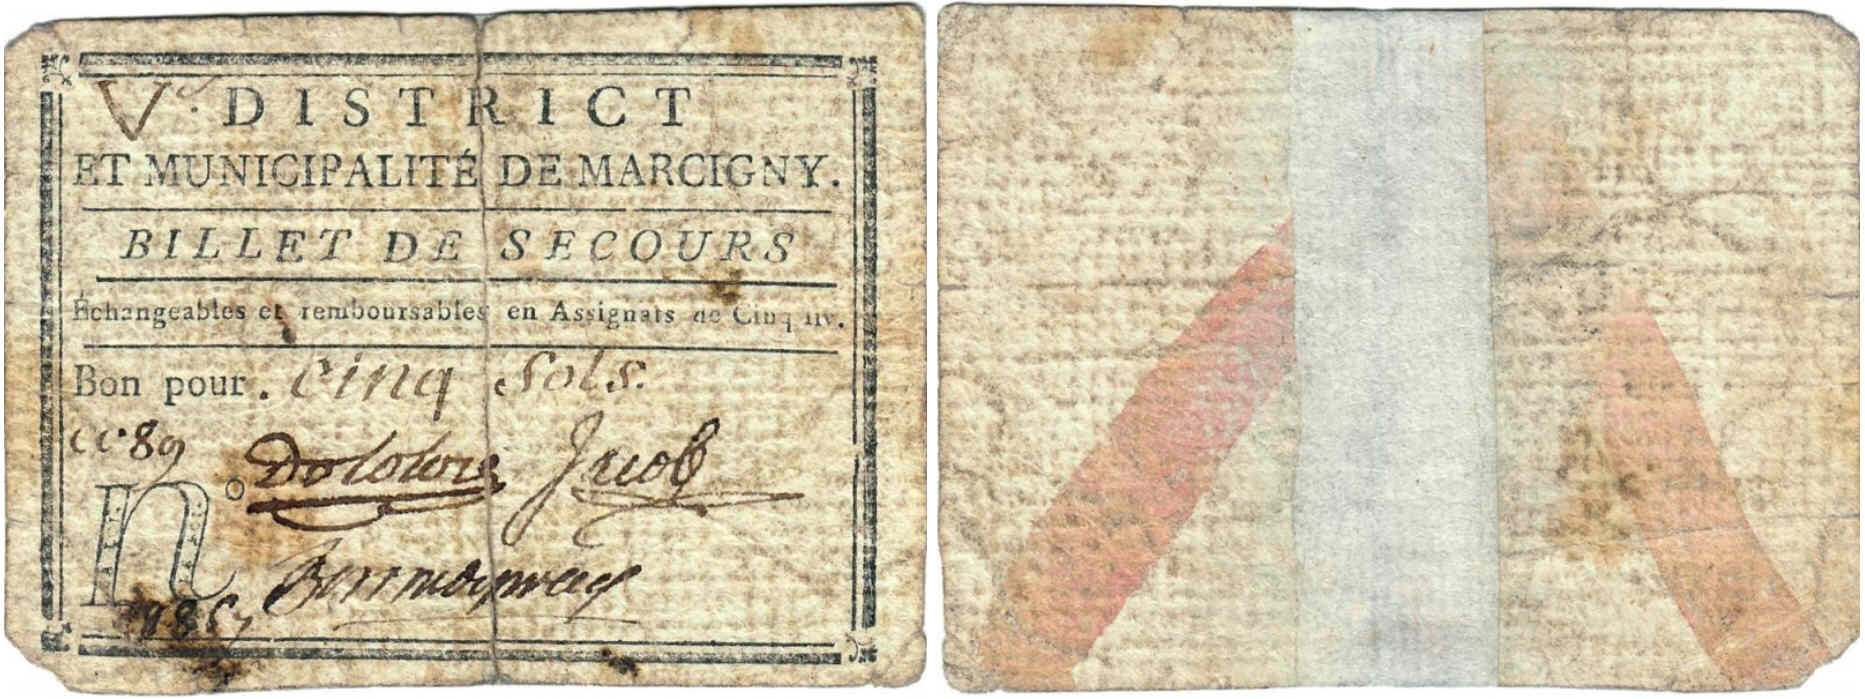 V. DISTRICT
ET MUNICIPALITÉ DE MARCIGNY.
BILLET DE SECOURS
Échangeables et remboursables en Assignats de Cinq liv.
Bon pour. cinq sols.
89
Jacob
n°